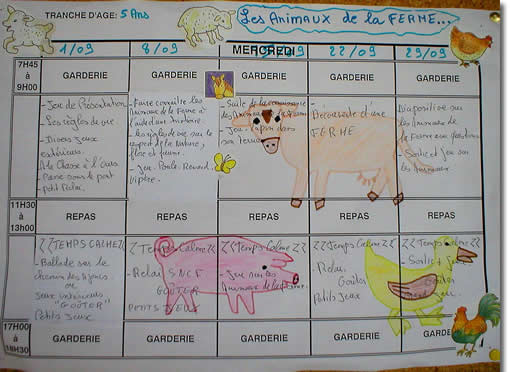 TRANCHE D'AGE: 5 Ans
Les Animaux de la FERME...
MERCREDI
1/09
8/09
22/09
29/09
7H45 à 9H00
GARDERIE
GARDERIE
GARDERIE
GARDERIE
GARDERIE
- Jeu de Présentation
- Les règles de vie.
- Divers jeux
extérieurs.
A la Chasse à l'Ours
- Passe sous le pont
- petit Relai
- Faire connaître les
Animaux de la Ferme à
l'aide d'une histoire.
- les règles de vie sur le
respect de la Nature,
flore et faune.
- Jeu. Poule. Renard.
Vipère.
- Suite de la connaissance
des Animaux de la Ferme
- Jeu. Lapin dans
son Terrier
- Découverte d'une
FERME
Diapositive sur
les Animaux de
la Ferme avec questions
- Sortie et jeu sur
les Animaux
11H30 à 13h00
REPAS
REPAS
REPAS
REPAS
REPAS
ZZ TEMPS CALME ZZ
- Ballade sur le
chemin des
ou
jeux intérieurs.
"GOÛTER"
Petits Jeux
ZZ Temps Calme ZZ
- Relai SNCF
GOÛTER
PETITS JEUX
ZZ Temps Calme ZZ
- Jeu sur les
Animaux de la Ferme.
ZZ Temps Calme ZZ
- Relai
Goûter
Petits jeux
ZZ Temps Calme ZZ
- Goûter
jeu.
17H00 à 18H30
GARDERIE
GARDERIE
GARDERIE
GARDERIE
GARDERIE